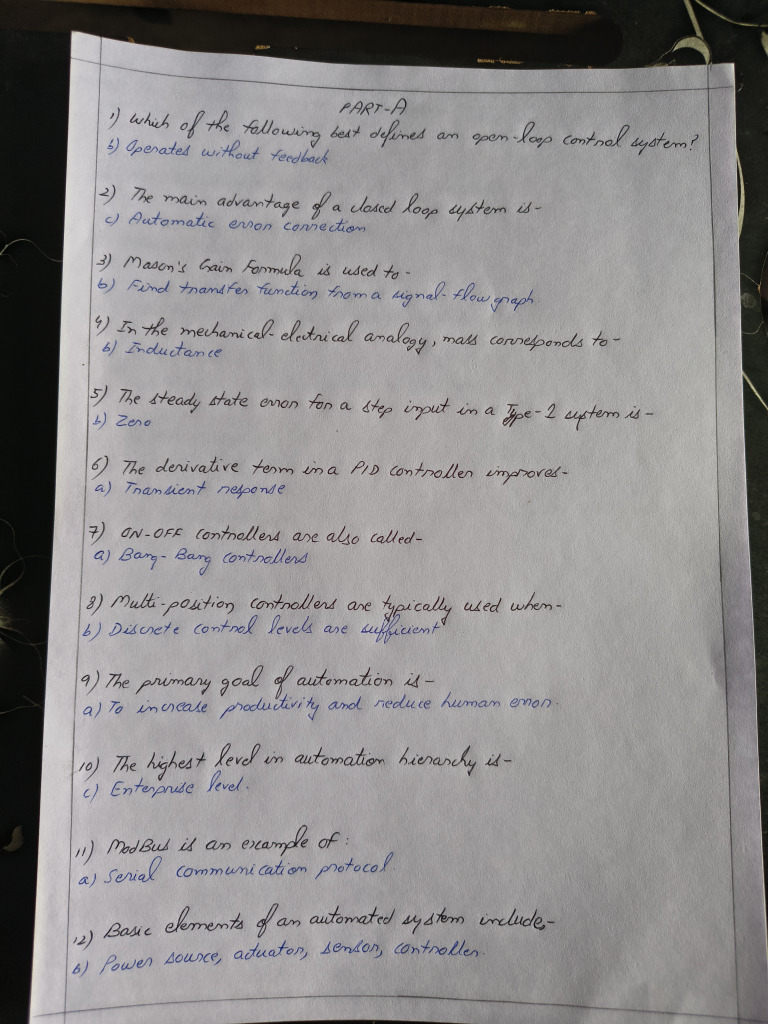 PART-A
1) Which of the following best defines an open-loop control system?
b) Operates without feedback
2) The main advantage of a closed loop system is-
c) Automatic error correction
3) Mason's Gain Formula is used to-
b) Find transfer function from a signal-flow graph
4) In the mechanical-electrical analogy, mass corresponds to-
b) Inductance
5) The steady state error for a step input in a Type-2 system is-
b) Zero
6) The derivative term in a PID controller improves-
a) Transient response
7) ON-OFF controllers are also called-
a) Bang-Bang controllers
8) Multi-position controllers are typically used when-
b) Discrete control levels are sufficient
9) The primary goal of automation is-
a) To increase productivity and reduce human error.
10) The highest level in automation hierarchy is-
c) Enterprise level.
11) ModBus is an example of:
a) Serial communication protocol.
12) Basic elements of an automated system include,-
b) Power source, actuator, sensor, controller.